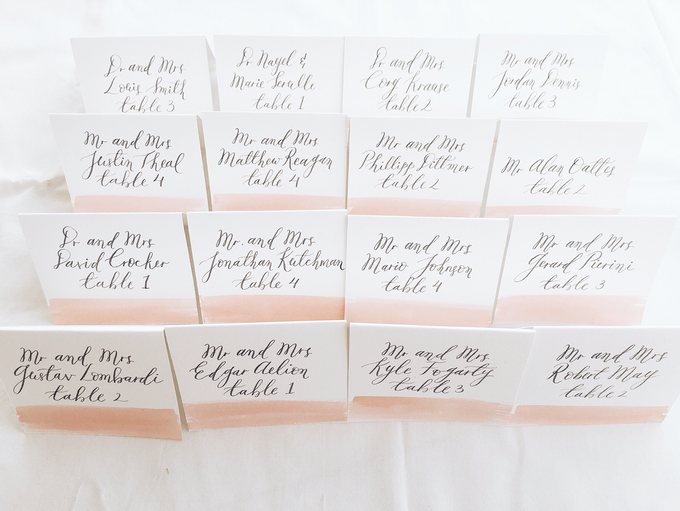 Dr and Mrs
Louis Smith
table 3
Dr Nayel &
Marie Serulle
table 1
Dr and Mrs
Cory Krause
table 2
Mr and Mrs
Jordan Dennis
table 3
Mr and Mrs
Justin Theal
table 4
Mr and Mrs
Matthew Reagan
table 4
Mr and Mrs
Phillipp Dittmer
table 2
Mr Alan Oattes
table 2
Dr and Mrs
David Crocker
table 1
Mr. and Mrs
Jonathan Kutchman
table 4
Mr and Mrs
Mario Johnson
table 4
Mr and Mrs.
Gerard Pierini
table 3
Mr and Mrs.
Gustav Lombardi
table 2
Mr and Mrs
Edgar Aelion
table 1
Mr and Mrs.
Kyle Fogarty
table 3
Mr and Mrs
Robert May
table 2